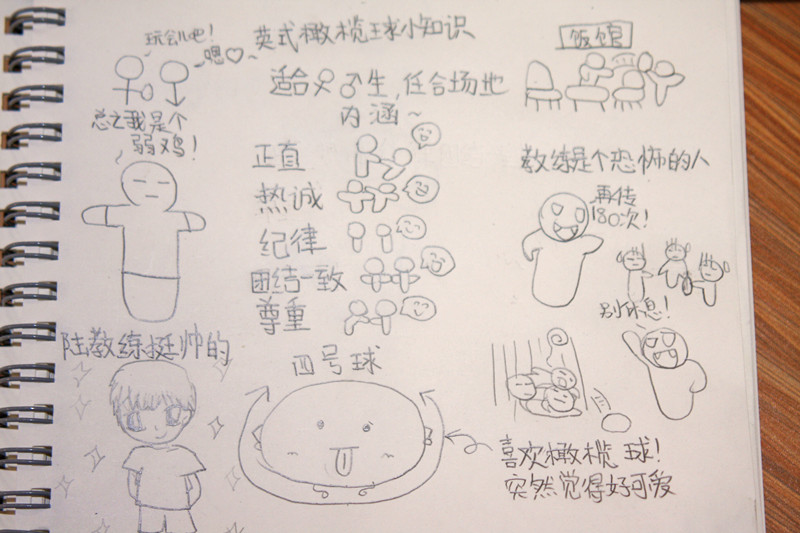 玩会儿吧!
嗯♡~
英式橄榄球小知识
适合♀♂生,任合场地
内涵~
饭馆
总之我是个
弱鸡!
正直
热诚
纪律
团结一致
尊重
教练是个恐怖的人
再传
180次!
别休息!
陆教练挺帅的
四号球
喜欢橄榄球!
突然觉得好可爱